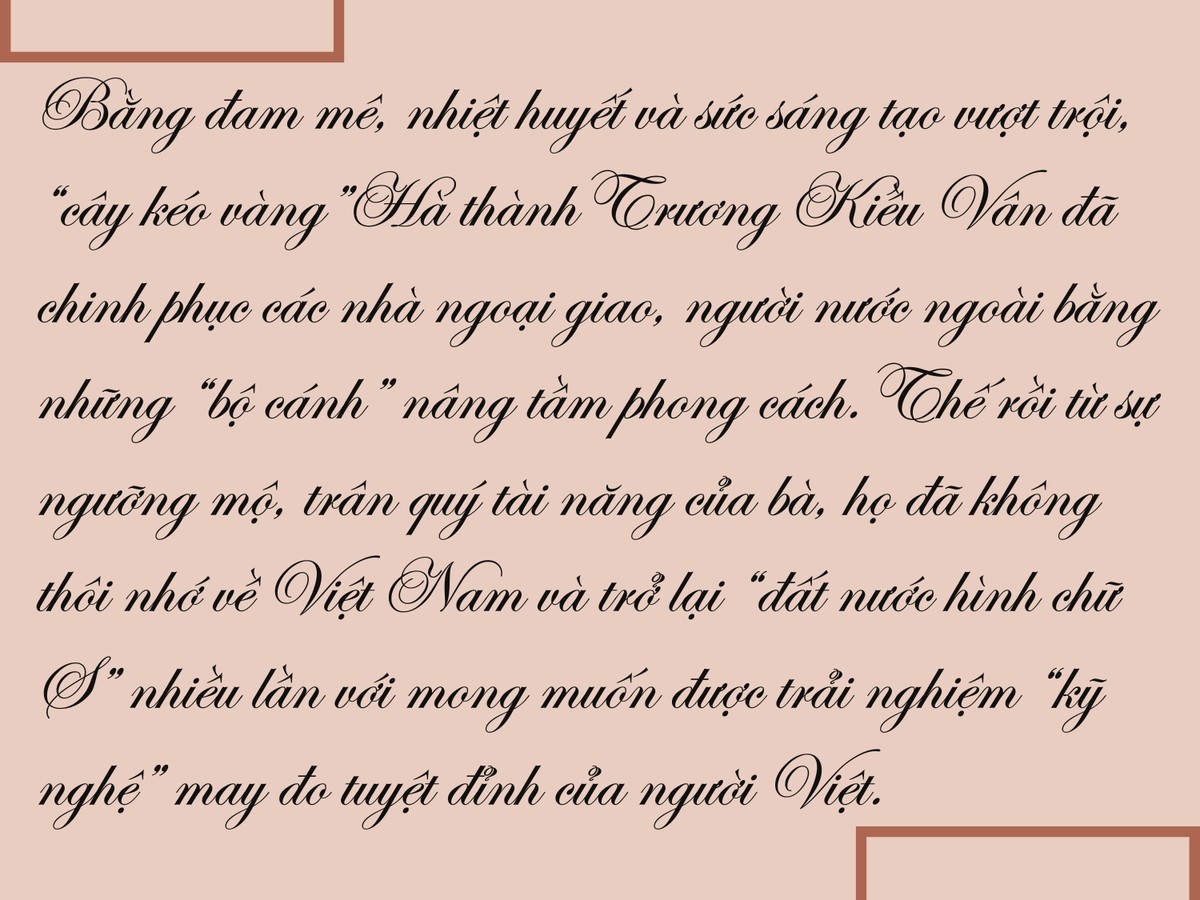 Bằng đam mê, nhiệt huyết và sức sáng tạo vượt trội,
“cây kéo vàng” Hà thành Trương Kiều Vân đã
chinh phục các nhà ngoại giao, người nước ngoài bằng
những “bộ cánh” nâng tầm phong cách. Thế rồi từ sự
ngưỡng mộ, trân quý tài năng của bà, họ đã không
thôi nhớ về Việt Nam và trở lại “đất nước hình chữ
S” nhiều lần với mong muốn được trải nghiệm “kỹ
nghệ” may đo tuyệt đỉnh của người Việt.